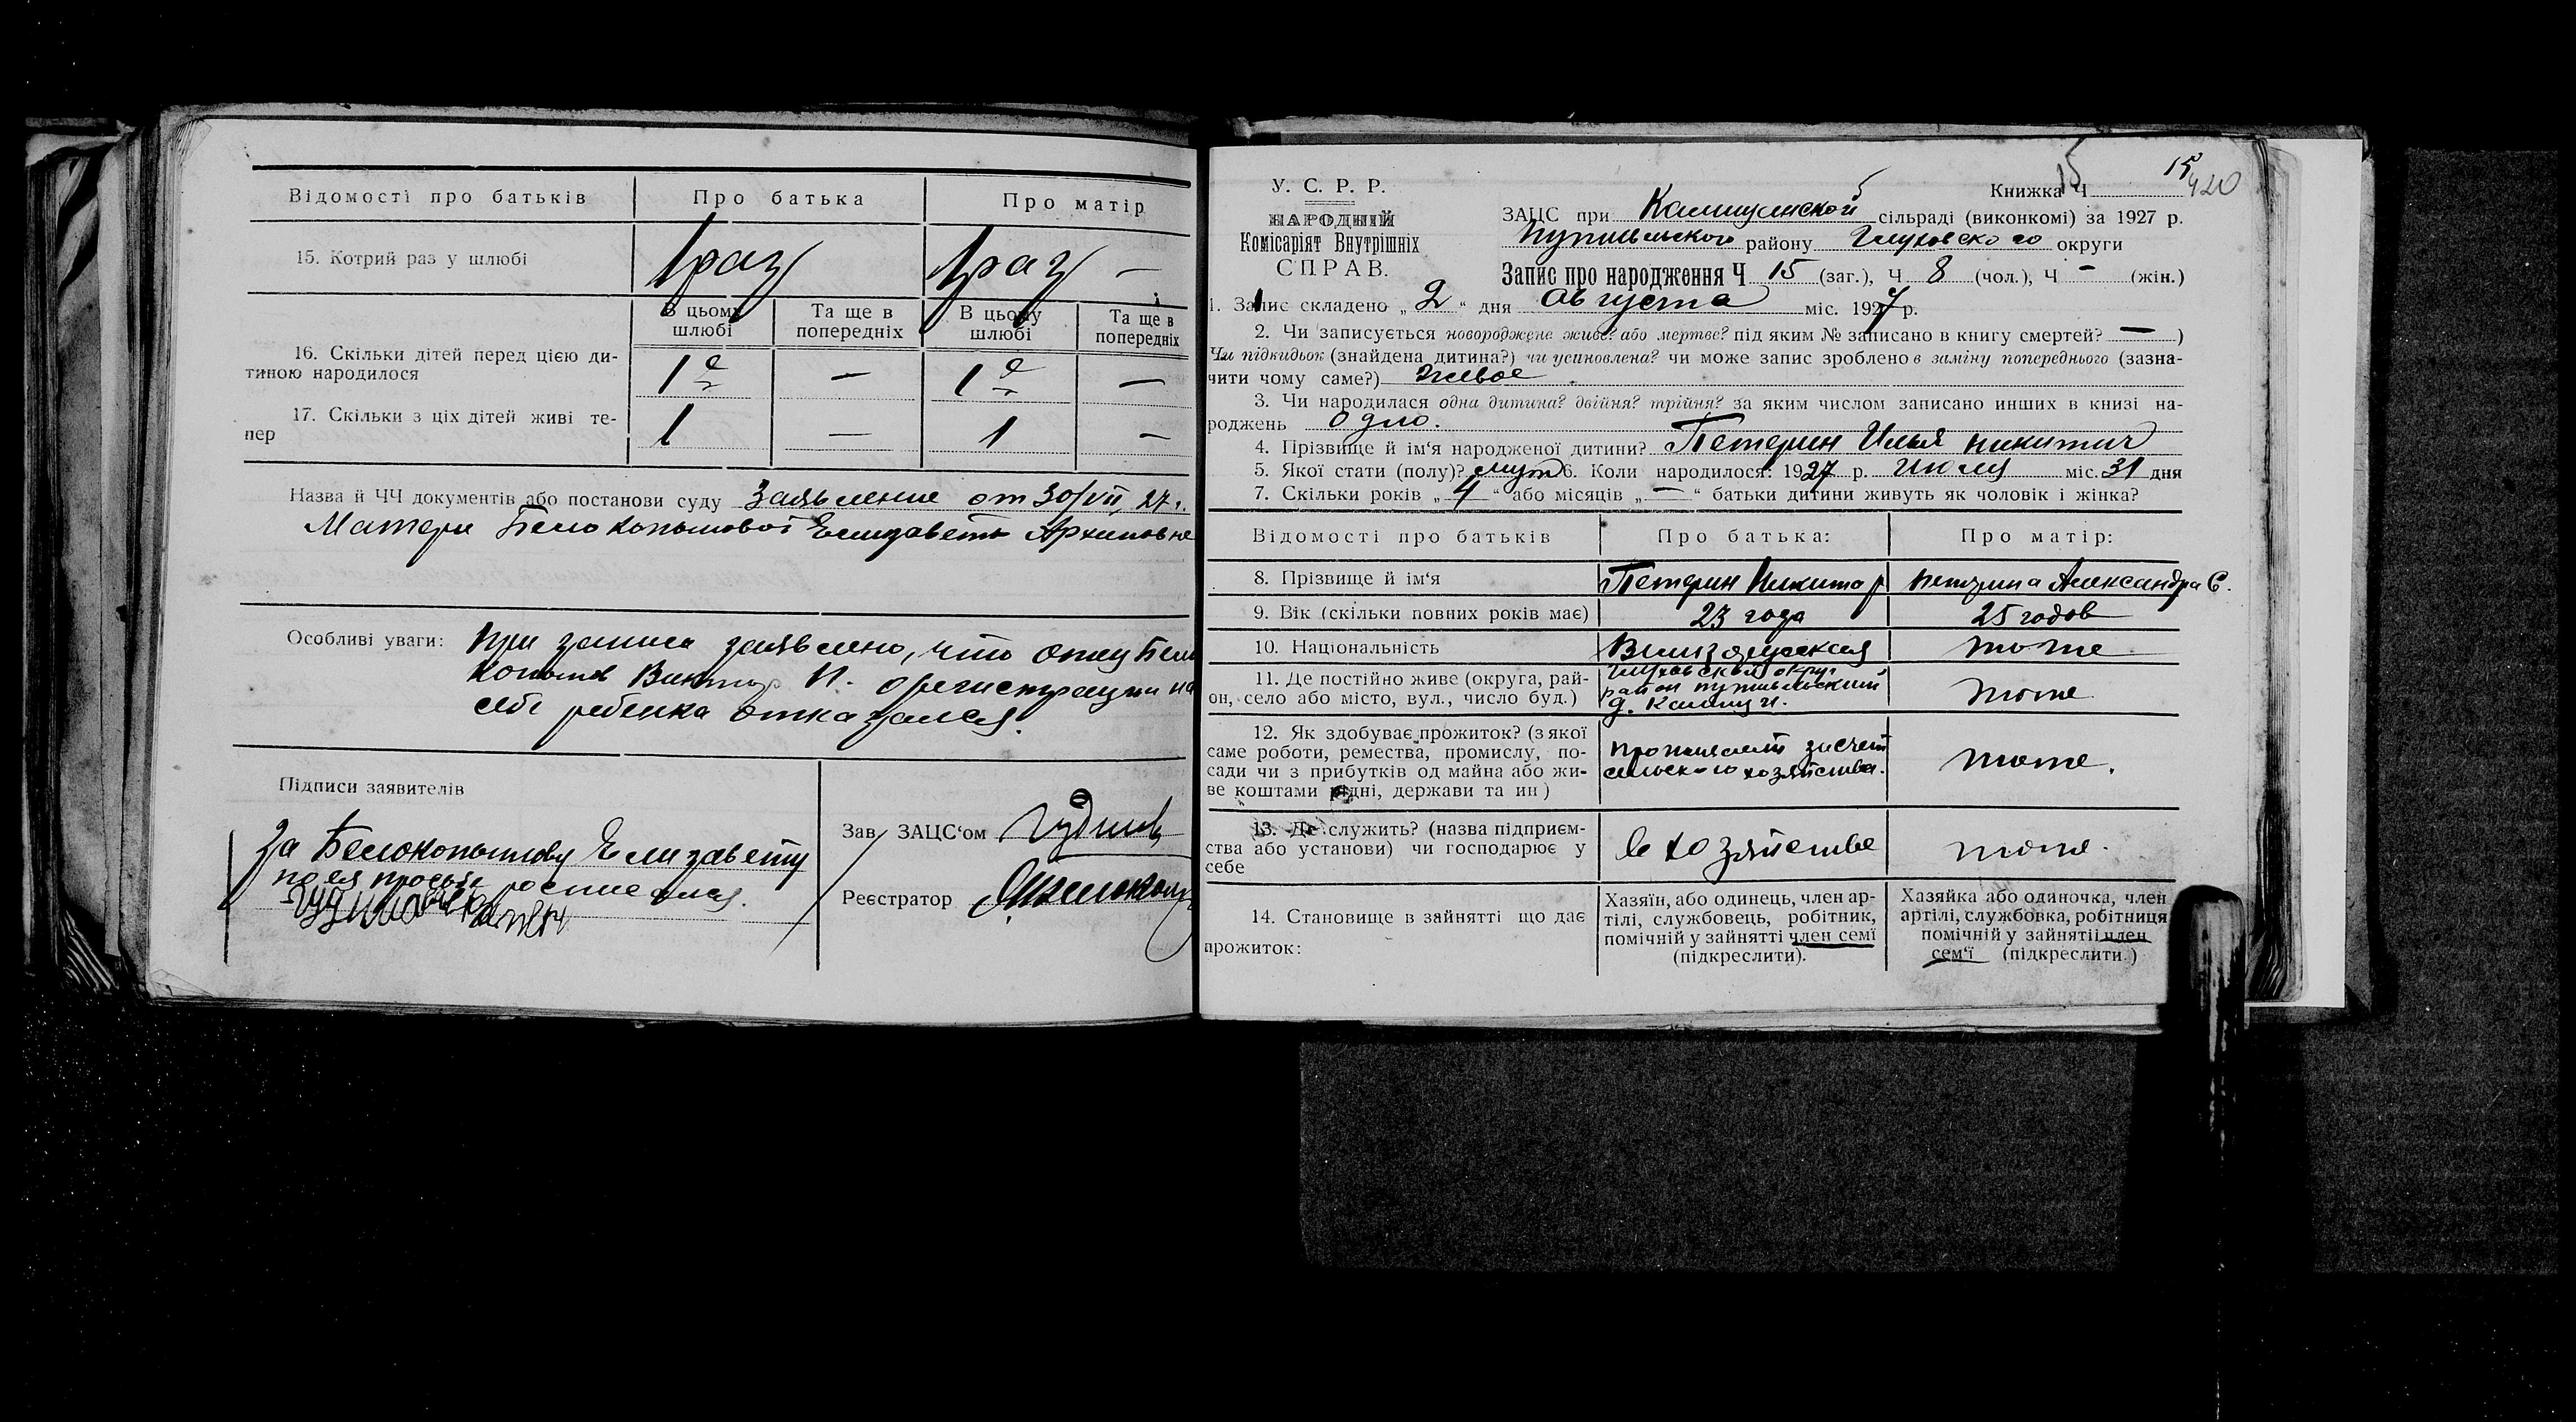 Відомості про батьків Про батька Про матір
15. Котрий раз у шлюбі 1 раз 1 раз —
В цьому шлюбі Та ще в попередніх В цьому шлюбі Та ще в попередніх
16. Скільки дітей перед цією ди-
тиною народилося 1 — 1 —
17. Скільки з ціх дітей живі те-
пер 1 — 1 —
Назва й ЧЧ документів або постанови суду Заявление от 30/VII, 27 г.
Матери Белокопытовой Елизаветы Архиповне
Особливі уваги: При записи заявлено, что отец Бело
копытов Виктор И. о регистрации на
себе ребенка отказался.
Підписи заявителів
За Белокопытову Елизавету
по ея просьбе росписался.
Зав. ЗАЦС‘ом
Реєстратор
15
15
420
У. С. Р. Р.
НАРОДНІЙ
Комісаріят Внутрішніх
СПРАВ.
Книжка Ч
ЗАЦС при Калищенской сільраді (виконкомі) за 1927 р.
Путивльского району Глуховского округи
Запис про народження Ч 15 (заг.), Ч 8 (чол.), Ч - (жін.)
1. Запис складено „ 2 “ дня августа міс. 1927 р.
2. Чи записується новороджене живе? або мертве? під яким № записано в книгу смертей? — )
Чи підкидьок (знайдена дитина?) чи усиновлена? чи може запис зроблено в заміну попереднього (зазна-
чити чому саме?) живое
3. Чи народилася одна дитина? двійня? трійня? за яким числом записано инших в книзі на-
роджень одно.
4. Прізвище й ім‘я народженої дитини? Петерин Илья Никитич
5. Якої стати (полу)? муж 6. Коли народилося: 1927 р. июлу міс. 31 дня
7. Скільки років „ 4 “ або місяців „ — “ батьки дитини живуть як чоловік і жінка?
Відомості про батьків Про батька: Про матір:
8. Прізвище й ім‘я Петерин Никита Петерина Александра С.
9. Вік (скільки повних років має) 23 года 25 годов
10. Національність Великорусская тоже
11. Де постійно живе (округа, рай-
он, село або місто, вул., число буд.) Глуховский округ
район Путивльский
тоже
12. Як здобуває прожиток? (з якої
саме роботи, ремества, промислу, по-
сади чи з прибутків од майна або жи-
ве коштами рідні, держави та ин)
Проживает за счет
сельского хозяйства. тоже.
13. Де служить? (назва підприєм-
ства або установи) чи господарює у
себе
в хозяйстве тоже.
14. Становище в зайнятті що дає
прожиток:
Хазяїн, або одинець, член ар-
тілі, службовець, робітник,
помічній у зайнятті член семї
(підкреслити).
Хазяйка або одиночка, член
артілі, службовка, робітниця
помічній у зайнятіі член
сем‘ї (підкреслити.)